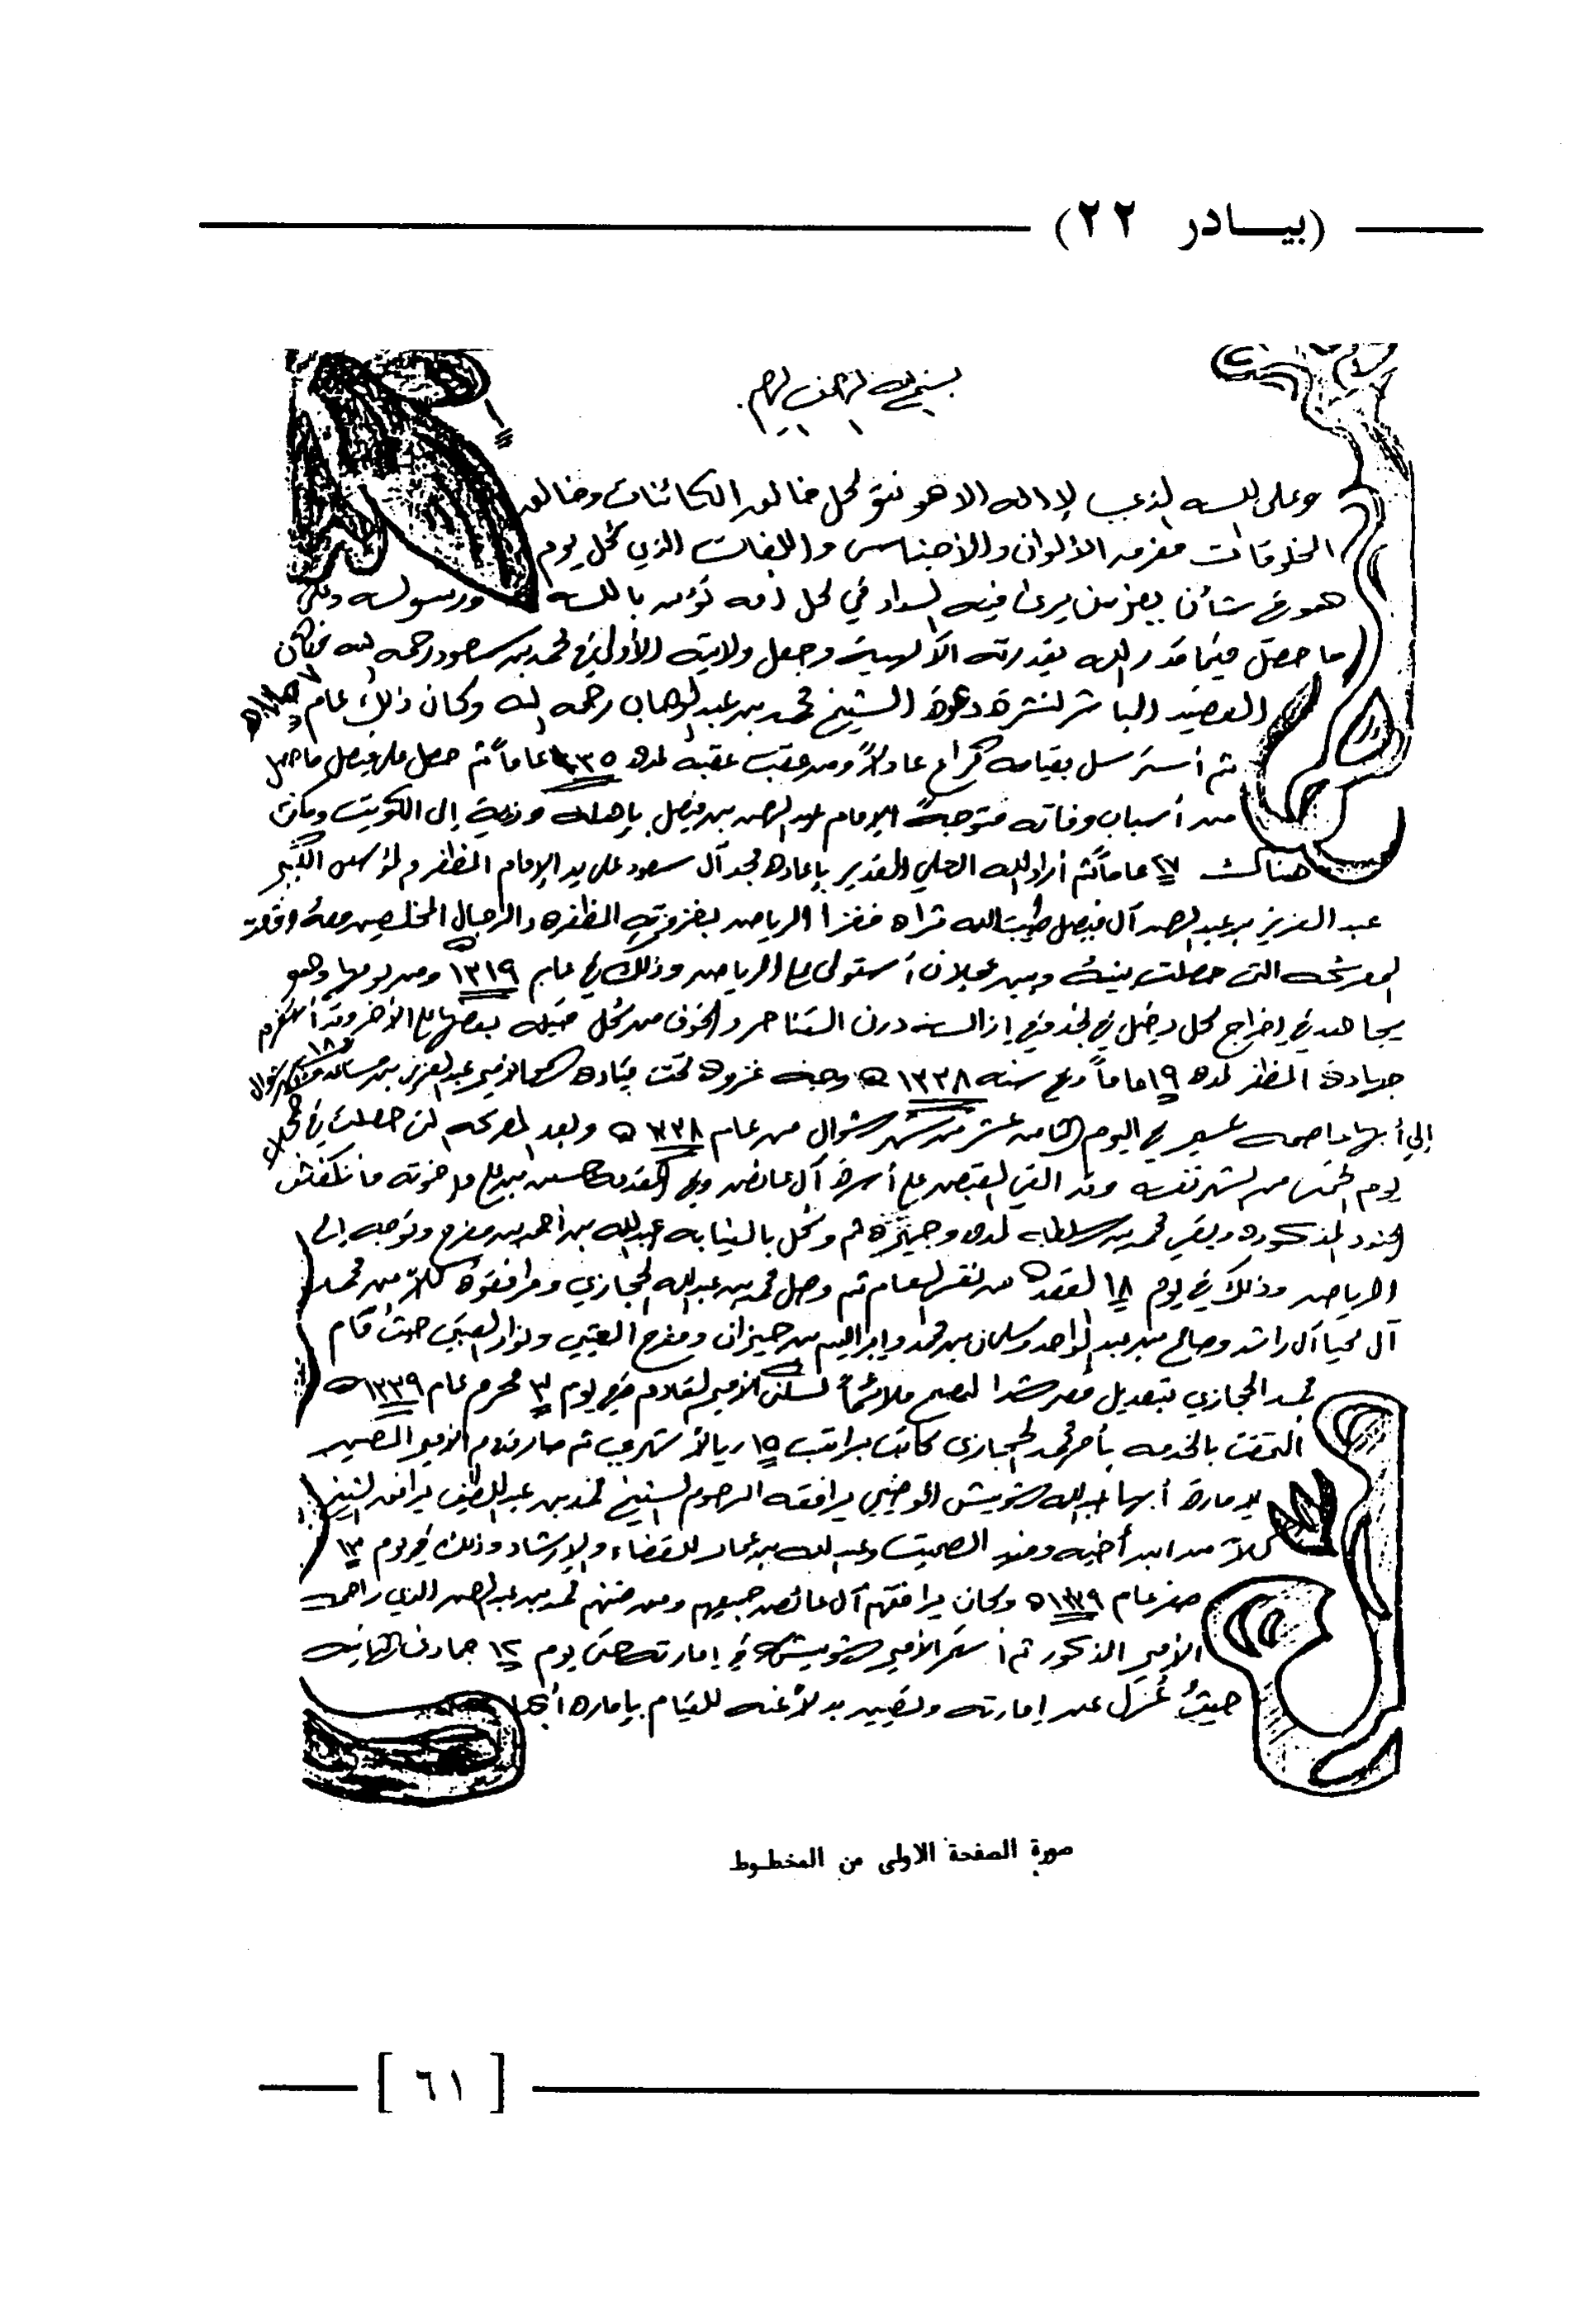 (بيــادر ٢٢)
بسم الله الرحمن الرحيم
وعلى الله الذي لا إله الا هو نتو كل خالق الكائنات وخالق
المخلوقات مفرق الألوان والأجناس واللغات الذي كل يوم
هو في شأن يعز من يرى فيه السداد في كل أمه تؤمن بالله ورسوله وعلى
ما حصل فيما قدر الله بقدرته الآلهية وجعل ولايته الأولى في محمد بن سعود رحمه الله فكان
العضيد المباشر لنشرة دعوة الشيخ محمد بن عبدالوهاب رحمه الله وكان ذلك عام
ثم أسترسل بقيامه كراع عادلاً ومن عقب عقبه لمده عاماً ثم حصل على فيصل ما حصل
من أسباب وفاته متوجهاً الإمام عبدالرحمن بن فيصل بإهله وذويه إلى الكويت ومكث
هناك عاماً ثم أراد الله العلي القدير بإعادة مجد آل سعود على يد الإمام المظفر والمؤسس الكبير
عبد العزيز بن عبدالرحمن آل فيصل طيب الله ثراه فغزا الرياض بغزوته المظفره والرجال المخلصين معه
المعركه التى حصلت بينه وبين عجلان أستولى على الرياض وذلك في عام ١٣١٩ ومن يومها وهو
يجاهد في إخراج كل دخيل في نجد وفي إزالت درن التناحر والخوف من كل قبيله بعضها مع الأخر وقد أستمر
جهادة المظفر لمده ١٩ عاماً وفي سنه ١٣٣٨ه وجه غزوه تحت قياده سمو الأمير عبدالعزيز بن مساعد
إلى أبها عاصمه عسير في اليوم الثامن عشر من شهر شوال من عام ١٣٣٨ه وبعد المعركه التى حصلت في حجلا
يوم الخميس من الشهر نفسه وقد القي القبض على أسرة آل عائض وفي القعده حسن بن علي وإخوته فأنكفئت
الجنود المذكوره وبقي محمد بن سلطان لمده وجيزة ثم وكل بالنيابه عبدالله بن أحمد بن مفرح وتوجه إلى
الرياض وذلك في يوم ١٨ القعده من نفس العام ثم وصل محمد بن عبدالله الحجازي ومرافقوة كلاً من محمد
آل محيا آل راشد وصالح بن عبد الواحد وسلمان بن محمد وإبراهيم بن جيزان ومفرح العتيبي ونوار العتيبي حيث قام
محمد الحجازي بتعديل قصر شدا ليصبح ملائماً لسكن الأمير القادم ففي يوم ٣ محرم عام ١٣٣٩ه
التحقت بالخدمه بأمر محمد الحجازى كاتب براتب ١٥ ريالاً شهري ثم صار قدوم الأمير المعين
لإمارة أبها عبدالله شويش الضويحي يرافقه المرحوم الشيخ محمد بن عبداللطيف يرافق الشيخ
كلاً من ابن أخيه وفهد الصميت وعبدالله بن عمار للقضاء والإرشاد وذلك في يوم ١٣
صفر عام ١٣٣٩ه وكان يرافقهم آل عائض جميعهم ومن ضمنهم محمد بن عبدالرحمن الذي
الأمير المذكور ثم أستمر الأمير شويش في إمارته حتى يوم ١٢ جمادى الثانيه
حيث عُزل عن إمارته وتعيين بدلاً عنه للقيام بإماره أبها
صورة الصفحة الاولى من المخطـوط
[ ٦١ ]